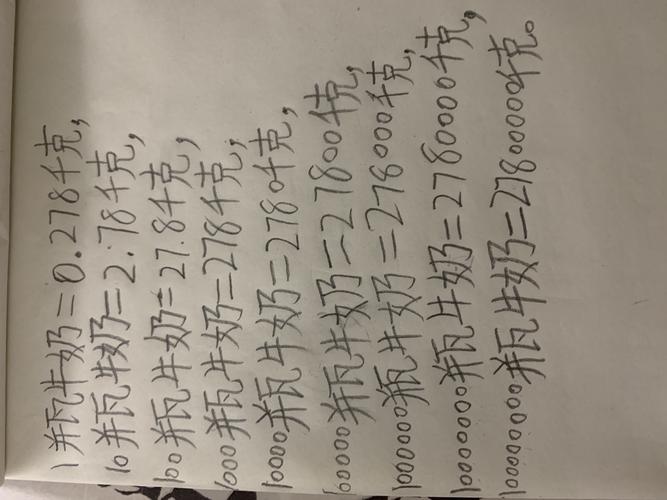 1瓶牛奶=0.278千克,
10瓶牛奶=2.78千克,
100瓶牛奶=27.8千克,
1000瓶牛奶=278千克,
10000瓶牛奶=2780千克,
100000瓶牛奶=27800千克,
1000000瓶牛奶=278000千克,
10000000瓶牛奶=2780000千克,
100000000瓶牛奶=27800000千克。